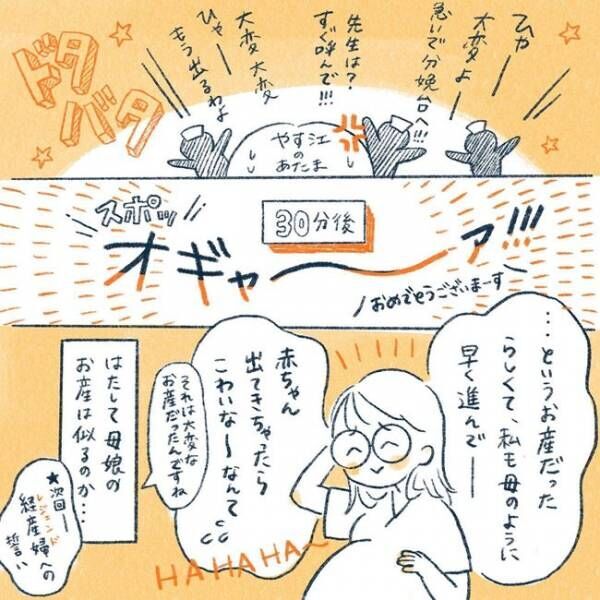 ひゃー
大変よー
急いで分娩台へ!!!
先生は?
すぐ呼んで!!!
大変大変
ひゃー
もう出るわよ
ドタ
バタ
やす江
の
あたま
30分後
スポッ
オギャ〜ァ!!!
おめでとうございまーす
…というお産だった
らしくて、私も母のように
早く進んでー
赤ちゃん
出てきちゃったら
こわいな〜なんて
それは大変な
お産だったんですね
HAHAHA〜
はたして母娘の
お産は似るのか…
★次回ー
レジェンド
経産婦への
誓い